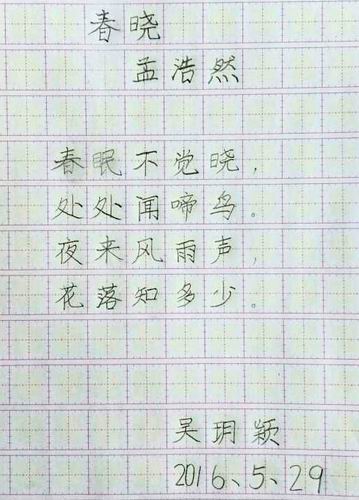 春晓
孟浩然
春眠不觉晓，
处处闻啼鸟。
夜来风雨声，
花落知多少。
吴玥颖
2016、5、29